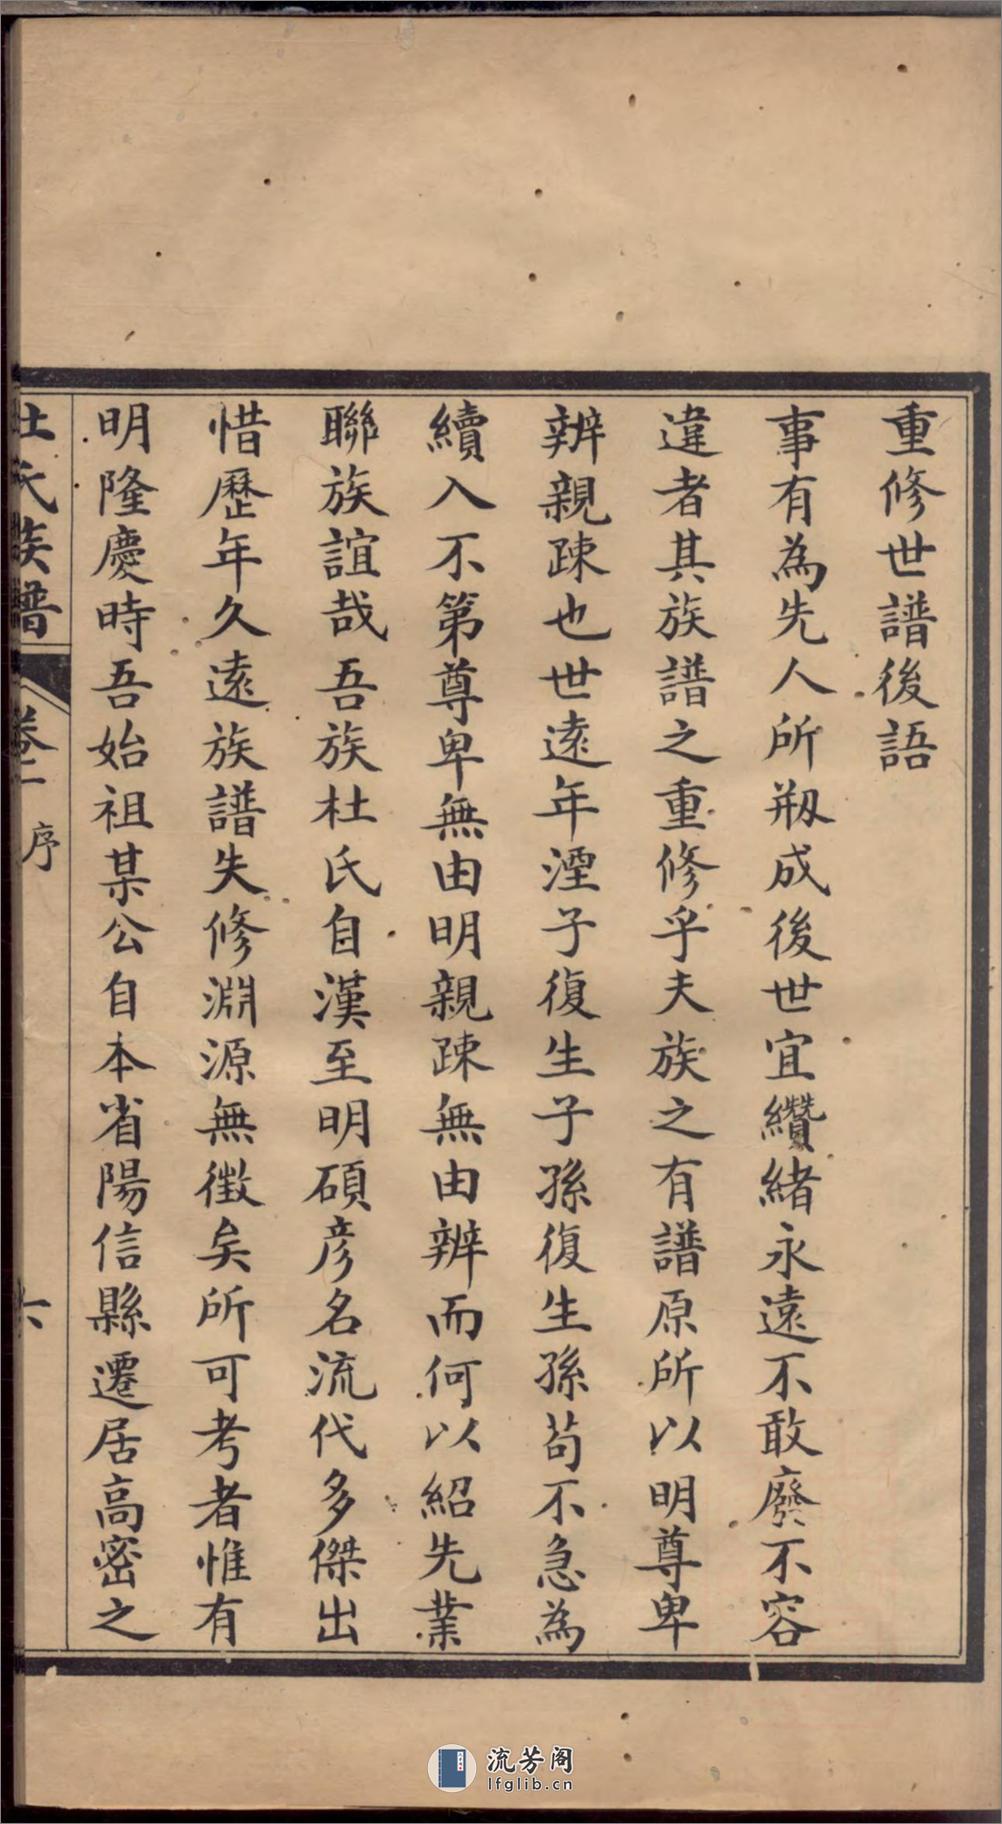 重修世譜後語
事有為先人所剏成後世宜纘緒永遠不敢廢不容
違者其族譜之重修乎夫族之有譜原所以明尊卑
辨親疎也世遠年湮子復生子孫復生孫苟不急為
續入不第尊卑無由明親疎無由辨而何以紹先業
聯族誼哉吾族杜氏自漢至明碩彦名流代多傑出
惜歷年久遠族譜失修淵源無徵矣所可考者惟有
明隆慶時吾始祖某公自本省陽信縣遷居高密之
杜氏族譜 序 六
流芳阁
lfglib.cn